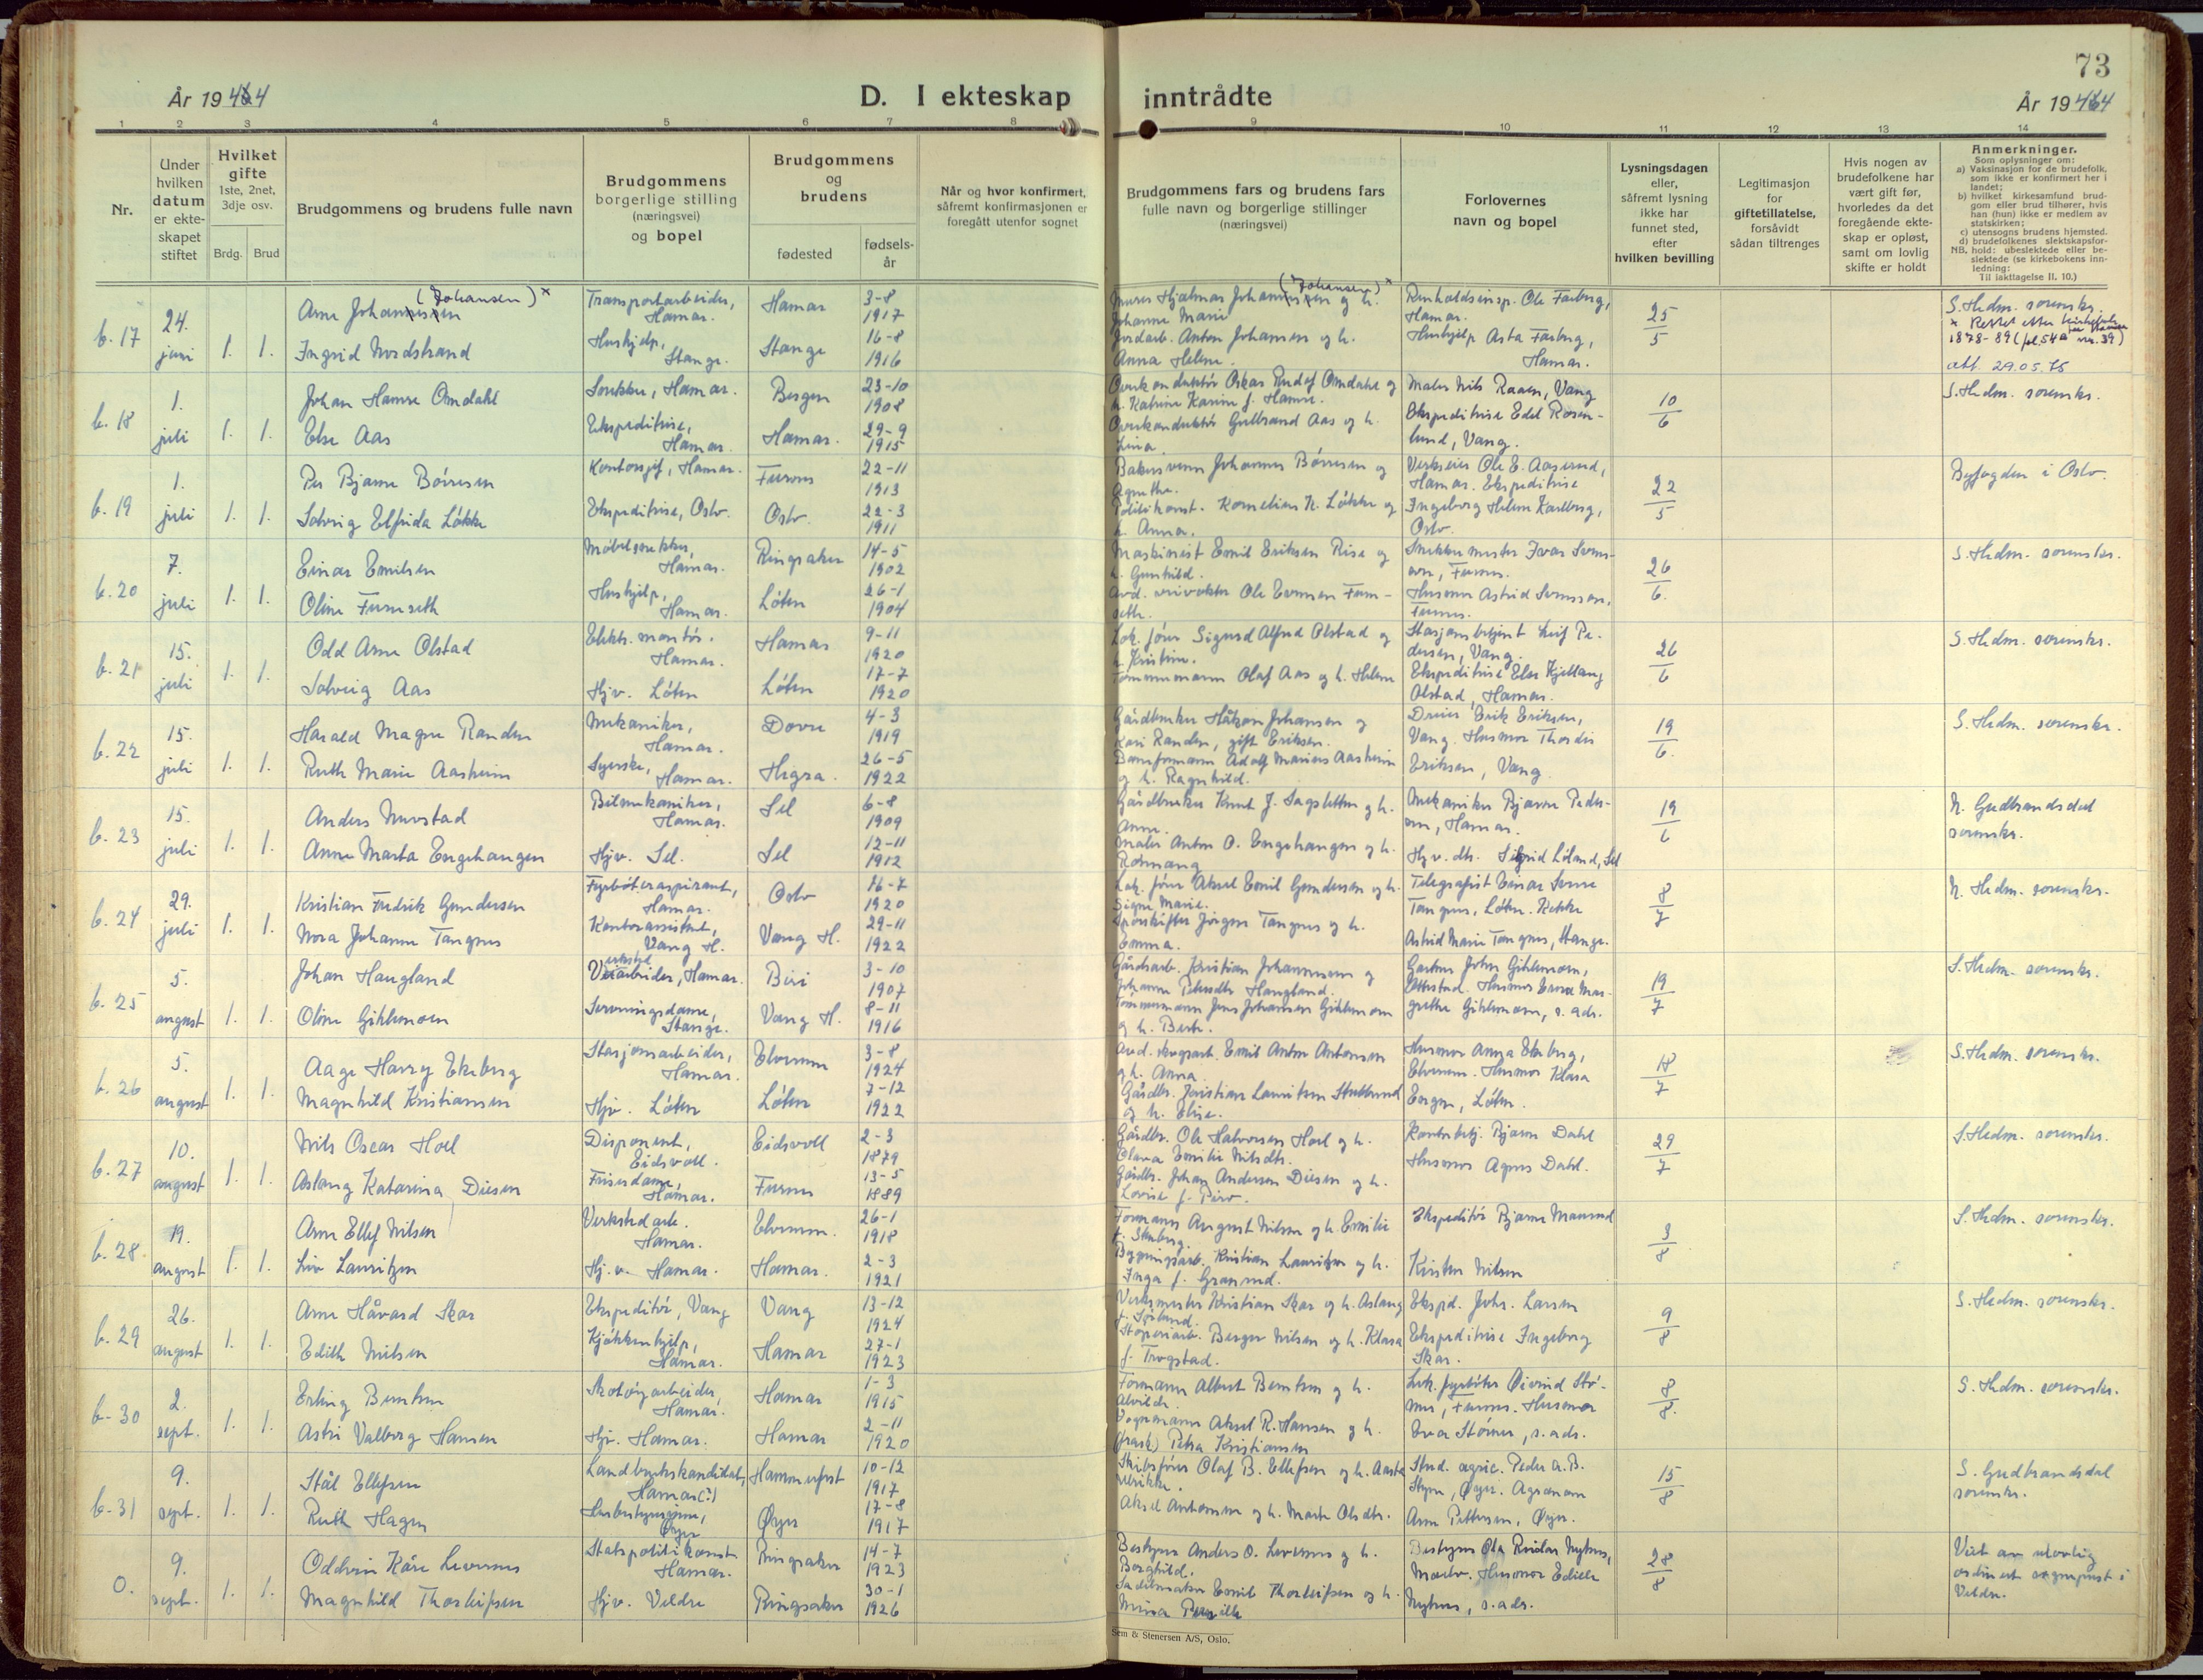 73
År 1944
D. I ekteskap inntrådte
År 1944
1 2 3 4 5 6 7 8 9 10 11 12 13 14
Nr.
Under hvilken datum er ekte-skapet stiftet
Hvilket gifte
1ste, 2net, 3dje osv.
Brdg. Brud
Brudgommens og brudens fulle navn
Brudgommens borgerlige stilling (næringsvei) og bopel
Brudgommens og brudens
fødested
fødsels-år
Når og hvor konfirmert, såfremt konfirmasjonen er foregått utenfor sognet
Brudgommens fars og brudens fars fulle navn og borgerlige stillinger (næringsvei)
Forlovernes navn og bopel
Lysningsdagen eller, såfremt lysning ikke har funnet sted, efter hvilken bevilling
Legitimasjon for giftetillatelse, forsåvidt sådan tiltrenges
Hvis nogen av brudefolkene har vært gift før, hvorledes da det foregående ekte-skap er opløst, samt om lovlig skifte er holdt
Anmerkninger.
Som oplysninger om:
a) Vaksinasjon for de brudefolk, som ikke er konfirmert her i landet;
b) hvilket kirkesamfund brud-gom eller brud tilhører, hvis han (hun) ikke er medlem av statskirken;
c) utensogns brudens hjemsted.
d) brudefolkenes slektskapsfor-hold: ubeslektede eller be-slektede (se kirkebokens inn-ledning:
NB. Til iakttagelse II. 10.)
b. 17 24. juni 1. 1.
Arne Johannesen (Johansen) x Transportarbeider, Hamar. Hamar 3-8 1917
Ingrid Nordstrand Hushjelp, Stange. Stange 16-8 1916
Hjalmar Johannesen (Johansen) x og h. Johanne Marie
Jordarb. Anton Johansen og h. Anna Helene.
Renholdsinsp. Ole Farberg, Hamar.
Hushjelp Asta Farberg, Hamar.
25/5
S. Hedm. sorenskr.
x Rettet etter
1878-89 (fol. 54a nr. 39)
att. 29.05.75
b. 18 1. juli 1. 1.
Johan Hamre Omdahl Snekker, Hamar. Bergen 23-10 1908
Else Aas Ekspeditrise, Hamar. Hamar. 29-9 1915
Overkonduktør Oskar Rudolf Omdahl og h. Katrine Karine f. Hamre.
Overkonduktør Gulbrand Aas og h. Lina.
Maler Nils Raaen, Vang
Ekspeditrise Edel Rosenlund, Vang.
10/6
S. Hedm. sorenskr.
b. 19 1. juli 1. 1.
Per Bjarne Børresen Kontorsjef, Hamar. Furnes 22-11 1913
Solveig Elfrida Løkke Ekspeditrise, Oslo. Oslo. 22-3 1911
Bakersvenn Johannes Børresen og Agnethe.
Politikonst. Kornelius N. Løkke og h. Anna.
Verkseier Ole E. Aaserud, Hamar. Ekspeditrise
Ingeborg Helene Karlberg, Oslo.
22/5
Byfogden i Oslo.
b. 20 7. juli 1. 1.
Einar Emilsen Møbelsnekker, Hamar. Ringsaker 14-5 1902
Oline Furuseth Hushjelp, Hamar. Løten 26-1 1904
Maskinist Emil Eriksen Rise og h. Gunhild.
Snekkermester Ivar , Furnes.
Husmor Astrid Svensson, Furnes.
26/6.
S. Hedm. sorenskr.
b. 21 15. juli 1. 1.
Odd Arne Olstad Elektr. montør. Hamar. Hamar 9-11 1920
Solveig Aas Hjv. Løten Løten 17-7 1920
Lok. fører Sigurd Alfred Olstad og h. Kristine.
Tømmermann Olaf Aas og h. Helene
Stasjonsbetjent Leif Pedersen, Vang.
Ekspeditrise Else Kjellaug Olstad, Hamar.
26/6
S. Hedm. sorenskr.
b. 22 15. juli 1. 1.
Harald Magne Randen Mekaniker, Hamar. Dovre 4-3 1919
Ruth Marie Aasheim Syerske, Hamar. Hegra. 26-5 1922
Gårdbruker Håkon Johansen og Kari Randen, gift Eriksen.
Baneformann Adolf Marius Aasheim og h. Ragnhild.
Dreier Erik Eriksen, Vang. Husmor Thordis Eriksen, Vang
19/6.
S. Hedm. sorenskr.
b. 23 15. juli 1. 1.
Anders Nerstad Bilmekaniker, Hamar. Sel 6-8 1909
Anne Marta Engehaugen Hjv. Sel. Sel 12-11 1912
Gårdbruker Knut J. Sagsletten og h. Anne.
Maler Anton O. Engehaugen og h.
Mekaniker Bjarne Pedersen, Hamar.
Hjv. dtr. Sigrid Løland, Sel
19/6
N. Gudbrandsdal sorenskr.
b. 24 29. juli 1. 1.
Kristian Fredrik Gundersen Fyrbøteraspirant, Hamar. Oslo 16-7 1920
Nora Johanne Tangnes Kontorassistent, Vang H. Vang H. 29-11 1922
Lok. fører Aksel Emil Gundersen og h. Signe Marie.
Sporskifter Jørgen Tangnes og h. Emma.
Telegrafist Einar Tangnes, Løten.
Astrid Marie Tangnes, Stange.
8/7
N. Hedm. sorenskr.
b. 25 5. august 1. 1.
Johan Haugland Verkstedarbeider, Hamar. Biri 3-10 1907
Oline Giklemoen Serveringsdame, Stange. Vang H. 8-11 1916
Gårdsarb. Kristian Johannesen og Johanne Haugland.
Tømmermann Jens Johansen Giklemoen og h. Berte.
Gartner John Giklemoen,
Husmor Margrethe Giklemoen, s. adr.
19/7
S. Hedm. sorenskr.
b. 26 5. august 1. 1.
Aage Harry Ekeberg Stasjonsarbeider, Hamar. Elverum 3-8 1924
Magnhild Kristiansen Hjv. Løten Løten 7-12 1922
Avd. skogsarb. Emil Anton Antonsen og h. Anna.
Gårdbr. Kristian Lauritsen og h. Elise.
Husmor Anna Ekeberg, Elverum. Husmor Klara
Løten.
18/7
S. Hedm. sorenskr.
b. 27 10. august 1. 1.
Nils Oscar Hoel Disponent, Eidsvoll. Eidsvoll 2-3 1879
Aslaug Katarina Diesen Friserdame, Hamar. Furnes 13-5 1889
Gårdbr. Ole Halvorsen Hoel og h. Olava Emilie Nilsdtr.
Gårdbr. Johan Andersen Diesen og h. Lovise f.
Kontorbetj. Bjarne Dahl
Husmor Agnes Dahl.
29/7
S. Hedm. sorenskr.
b. 28 19. august 1. 1.
Arne Ellef Nilsen Verkstedarb. Hamar. Elverum. 26-1 1918
Liv Lauritzen Hj.v. Hamar. Hamar. 2-3 1921
Formann August Nilsen og h. Emilie f. Stenberg.
Bygningsarb. Kristian Lauritzen og h. Inga f. Granerud.
Ekspeditør Bjarne
Kirsten Nilsen
3/8
S. Hedm. sorenskr.
b. 29 26. august 1. 1.
Arne Håvard Skar Ekspeditør, Vang Vang 13-12 1924
Edith Nilsen Kjøkkenhjelp, Hamar. Hamar 27-1 1923
Verksmester Kristian Skar og h. Aslaug
Støperiarb. Birger Nilsen og h. Klara f. Trogstad.
Ekspd. Johs. Larsen
Ekspeditrise Ingeborg Skar.
9/8
S. Hedm. sorenskr.
b. 30 2. sept. 1. 1.
Erling Berntsen Skotøyarbeider, Hamar. Hamar 1-3 1915
Astri Valborg Hansen Hjv. Hamar. Hamar 2-11 1920
Formann Albert Berntsen og h. Alvilde.
Vognmann Aksel R. Hansen og h. (frask.) Petra Kristiansen
Lok. fyrbøter Øivind Størmer, Furnes. Husmor
Eva Størmer, s. adr.
8/8.
S. Hedm. sorenskr.
b. 31 9. sept. 1. 1.
Ståle Ellefsen Landbrukskandidat, Hamar(?) Hammerfest 10-12 1917
Ruth Hagen Husbestyrerinne, Øyer Øyer 17-8 1917
Skibsfører Olaf B. Ellefsen og h. Aasta Ulrikke.
Aksel Antonsen og h. Marte Olsdtr.
Stud. agric. Peder A. B. , Øyer. Agronom
Arne Pettersen, Øyer.
15/8
S. Gudbrandsdal sorenskr.
0. 9. sept. 1. 1.
Oddvin Kåre Levernes Statspolitikonst. Hamar. Ringsaker 14-7 1923
Magnhild Thorleifsen Hjv. Veldre Ringsaker 30-1 1926
Bestyrer Anders O. Levernes og h. Borghild.
Sadelmaker Emil Thorleifsen og h. Mina Pernille
Bestyrer Ola Reidar Nyhus, Moelv. Husmor Edith Nyhus, s. adr.
28/8
Viet av ulovlig ordinert sogneprest i Veldre.
Sem & Stenersen A/S, Oslo.